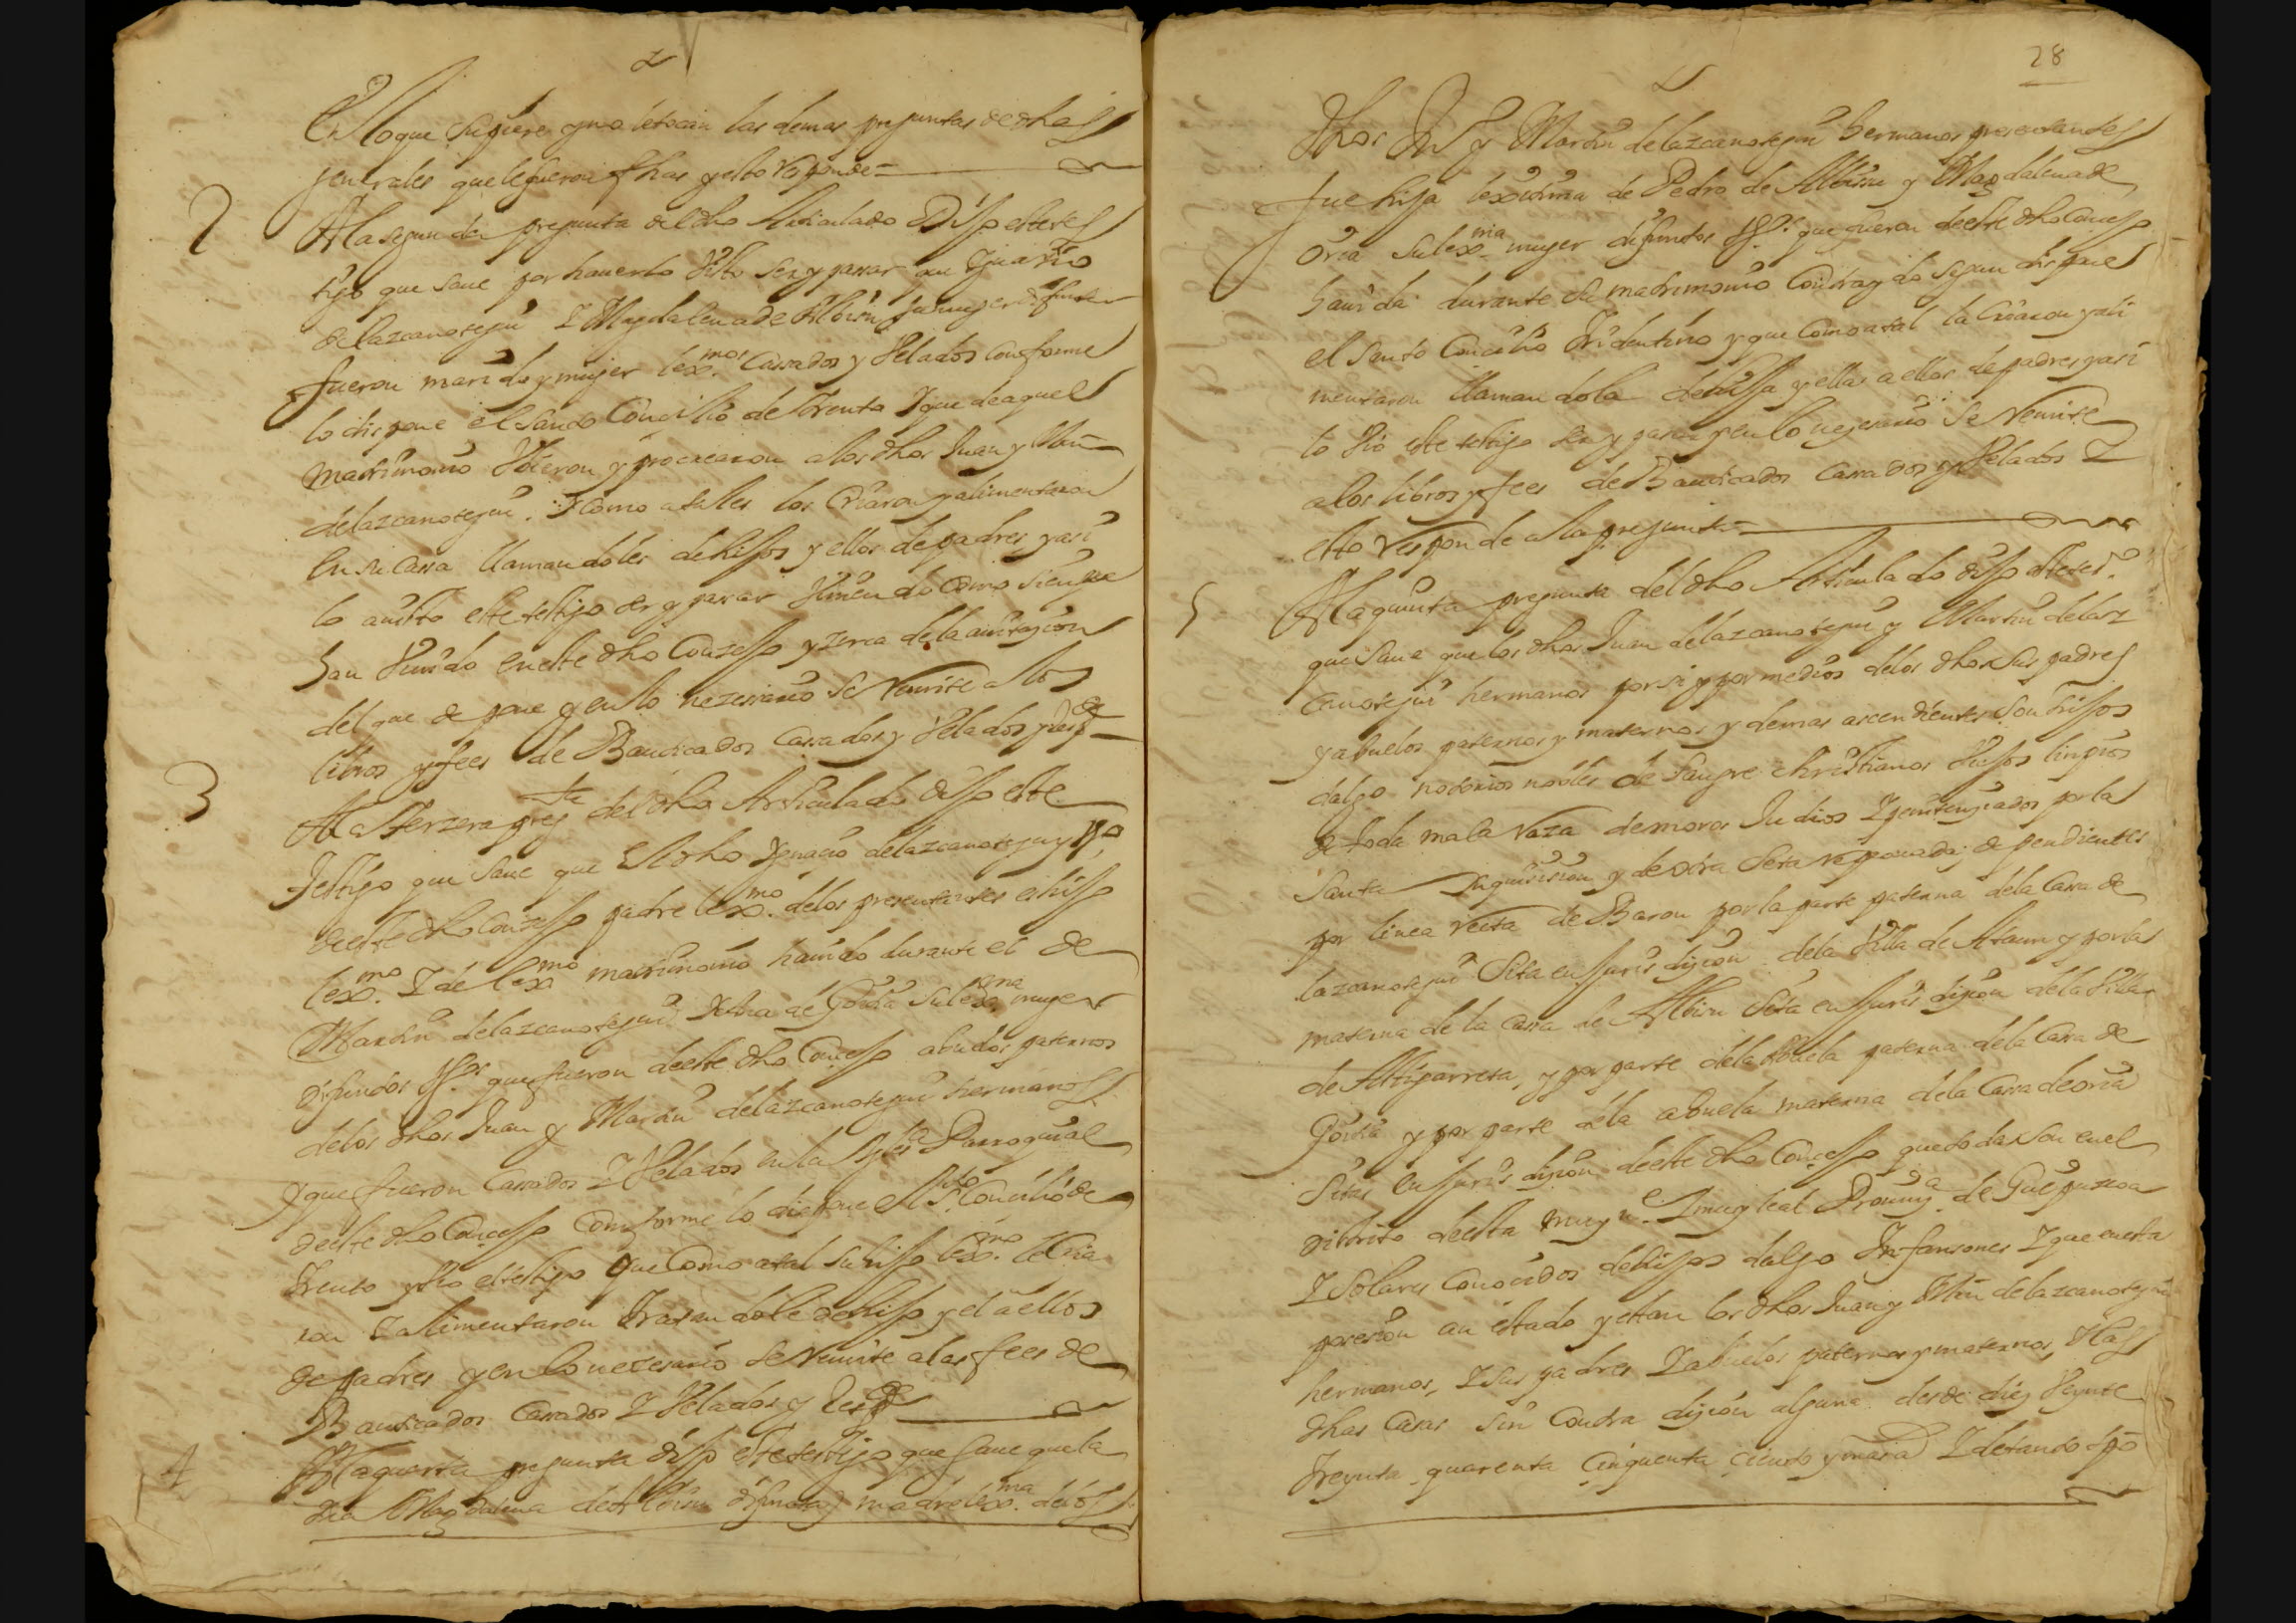 En lo que supiere y no le tocan las demas preguntas de dhas
generales que le fueron fhas y esto responde=
2 A la segunda pregunta del dho Articulado Dijo este tes
tigo que saue por hauerlo visto ser y passar que Ygnaçio
de lazcanotegui Y Magdalena de Albisu su muger difunta
fueron marido y muger lex.mos Cassados y Velados conforme
lo dispone el Santo Concilio de Trento Y que de aquel
matrimonio Vbieron y procrearon a los dhos Juan y Mrn
de lazcanotegui. Y como a tales los Criaron y alimentaron
en su Cassa llamandoles de hijos y ellos de padres y asi
lo a uisto este testigo ser y passar Viuiendo como siempre
han Viuido en este dho Conzejo y zerca de la auitaçion
del que depone y en lo nezessario se Remite a los
libros y fees de Bautizados Cassados y Velados y resp.de
3 A la Terzera preg.ta del dho Articulado dijo este
Testigo que saue que el dho Ygnacio de lazcanotegui Vº
de este dho Conzejo padre lex.mo de los presentantes es hijo
lex.mo Y de lex.mo matrimonio hauido durante el de
Martin de lazcanotegui Y Ana de Goitia su lex.ma muger
difuntos Vº.s que fueron de este dho Conçejo abuelos paternos
de los dhos Juan y Martin de lazcanotegui hermanos
Y que fueron Cassados Y Velados en la Yglesia Parroquial
de este dho Conçejo Conforme lo dispone el S.to Concilio de
Trento y Vio el testigo que Como a tal su hijo lex.mo le Cria
ron Y alimentaron Tratandole de hijo y el a ellos
de padres y en lo nezesario se Remite a las fees de
Bautizados Cassados Y Velados y Resp.de
4 A la quarta pregunta dijo este testigo que saue que la
dha Magdalena de Albisu difunta madre lex.ma de los
28
dhos Jn y Martin de lazcanotegui hermanos presentantes
fue hija lexitima de Pedro de Albisu y Magdalena de
Oria su lex.ma muger difuntos Vº.s que fueron de este dho Conçejo
hauida durante su matrimonio Contraydo segun dispone
el Santo Concilio Tridentino y que Como a tal la Criaron y ali
mentaron llamandola de hija y ella a ellos de padres y asi
lo Vio este testigo ser y passar y en lo neçesario se Remite
a los libros y fees de Bautizados Cassados y Velados Y
esto Responde a la pregunta=
5 A la quinta pregunta del dho Articulado dijo este tes.º
que saue que los dhos Juan de lazcanotegui y Martin de laz
canotegui hermanos por si y por medios de los dhos sus padres
y abuelos paternos y maternos y demas ascendientes son hijos
dalgo notorios nobles de sangre christianos Viejos limpios
de toda mala Raza de moros Judios Y penitençiados por la
Santa Inquisision y de otra Seta Reprouada; dependientes
por linea Recta de Baron por la parte paterna de la Cassa de
lazcanotegui Sita en Jurisdiçion de la Villa de Ataun y por la
materna de la Cassa de Albisu Sita en Jurisdiçion de la Villa
de Alçagarreta, y por parte de la Abuela paterna de la Cassa de
Goitia y por parte de la abuela materna de la Cassa de oria
Sitas en Jurisdiçion de este dho Conçejo que todas son en el
distrito de esta muy n.e Y muy leal Prouinç.a de Guipuzcoa
Y Solares Conoçidos de hijos dalgo Infansones Y que en esta
posesion an estado y estan los dhos Juan y Mrn de lazcanotegui
hermanos, Y sus padres Y abuelos paternos y maternos, Y las
dhas Casas sin Contradiçion alguna desde diez Veynte
Treynta quarenta Çinquenta çiento y mas a.s Y de tanto tpo